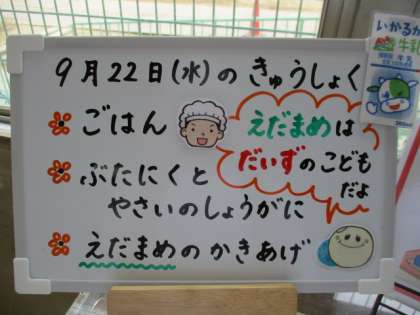 9月22日(水)の きゅうしょく
ごはん
えだまめは
だいずのこども
だよ
ぶたにくと
やさいのしょうがに
えだまめのかきあげ
いかるが
牛乳